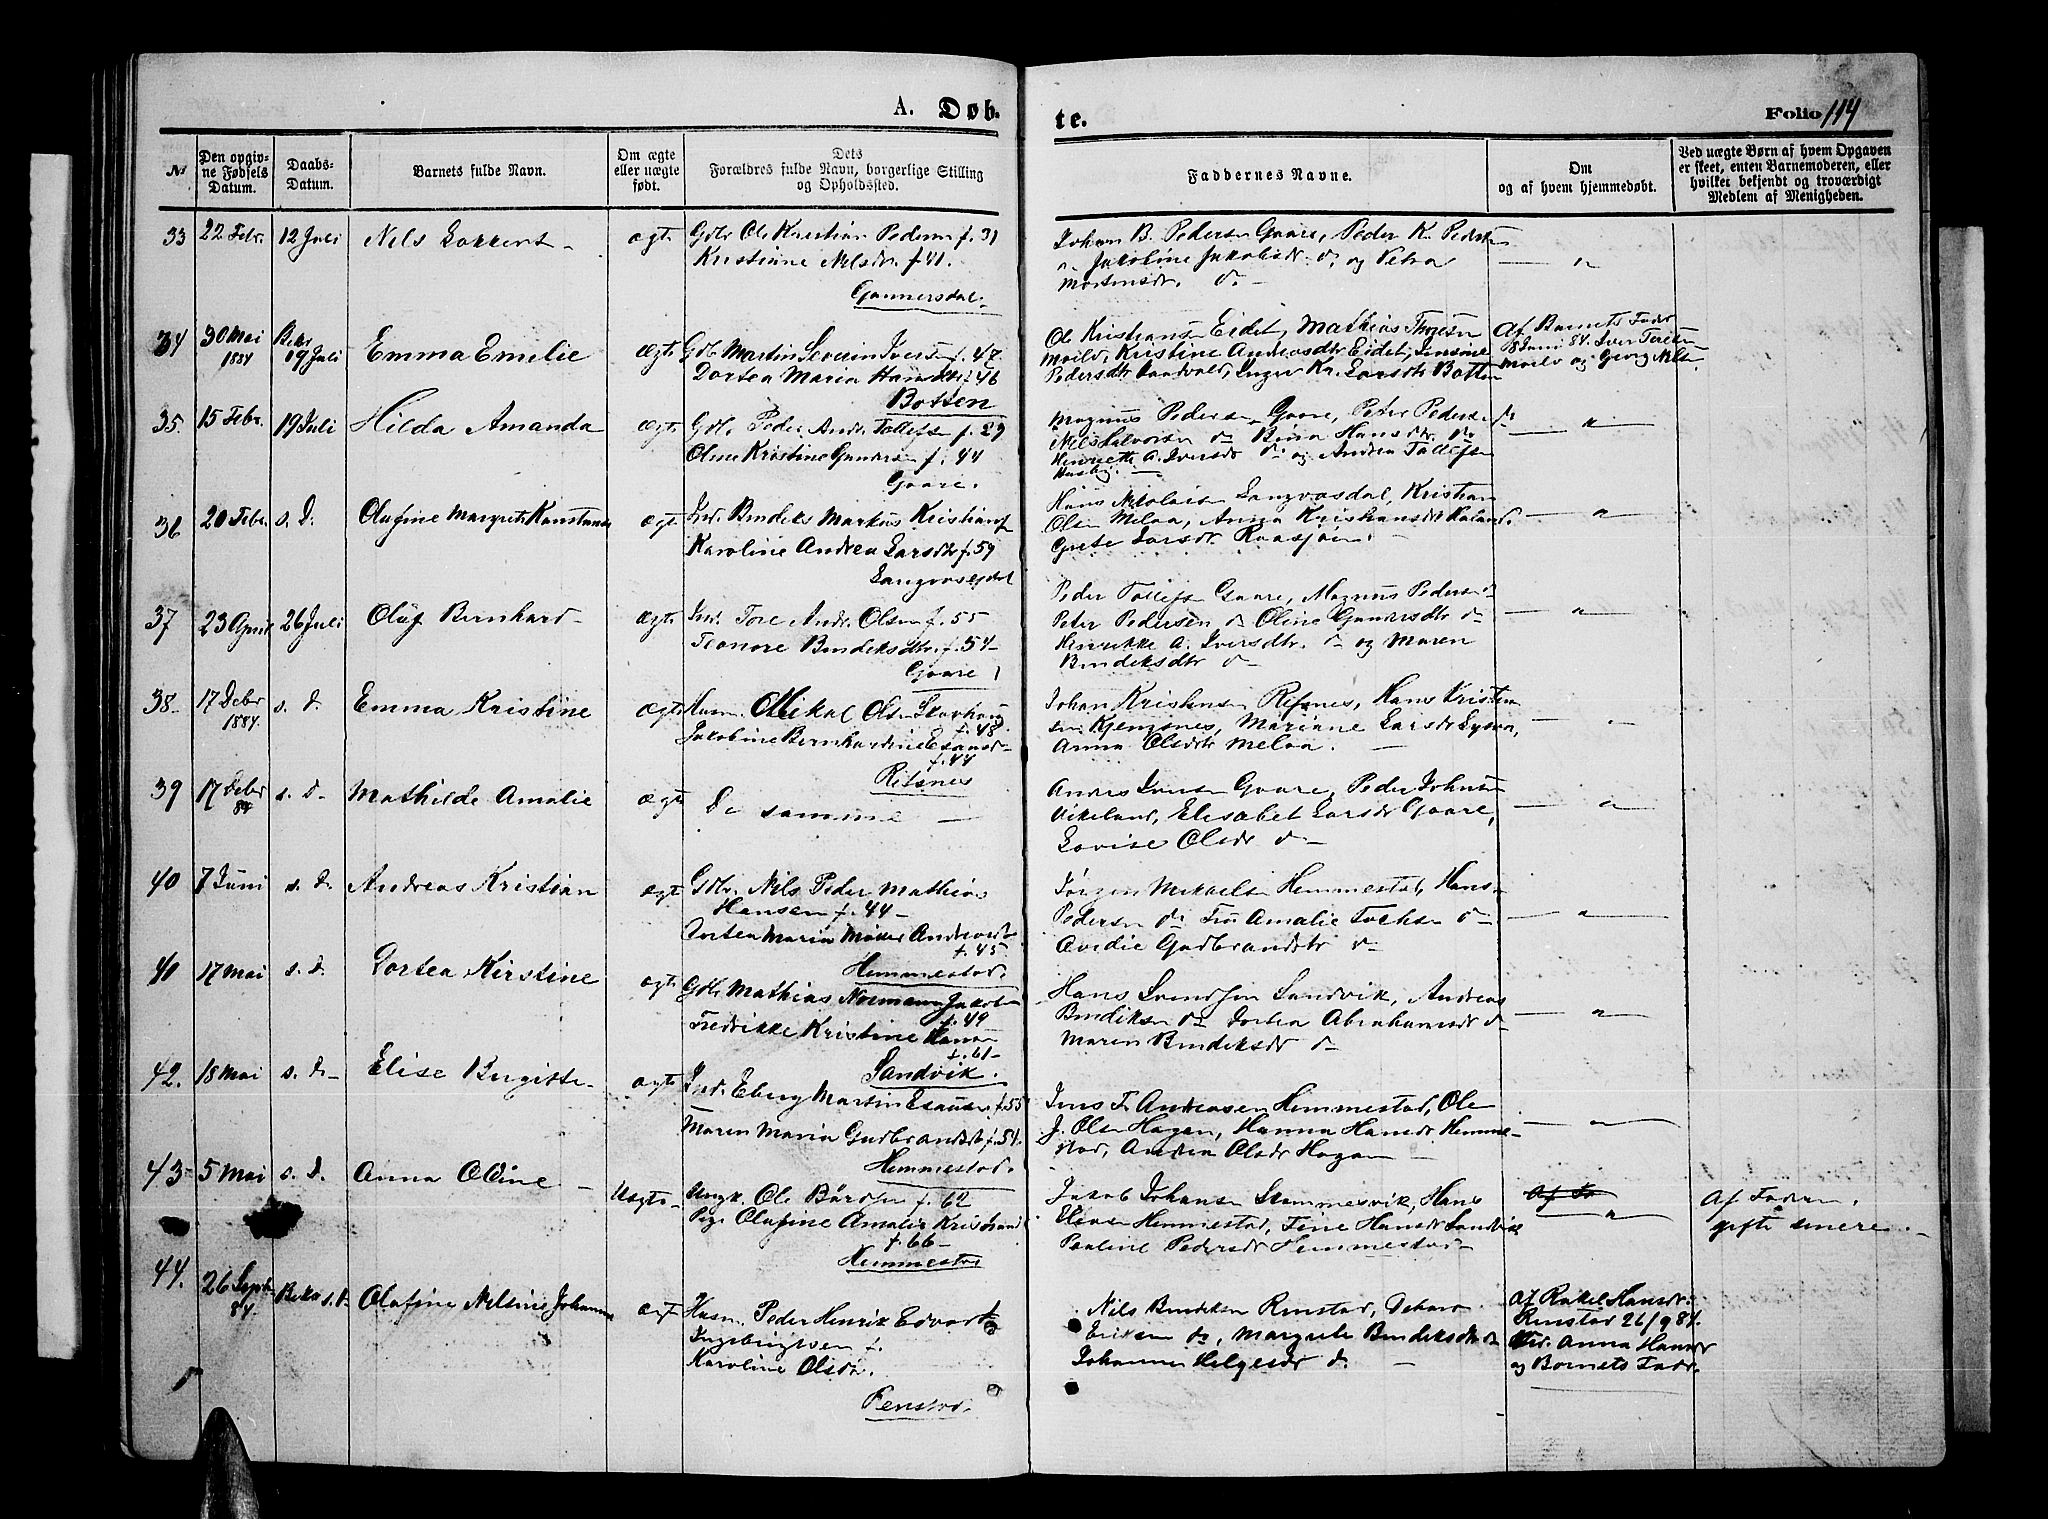 A. Døb-
te.
Folio 114
№
Den opgiv-
ne Fødsels
Datum.
Daabs-
Datum.
Barnets fulde Navn.
Om ægte
eller uægte
født.
Dets
Forældres fulde Navn, borgerlige Stilling
og Opholdssted.
Faddernes Navne.
Om
og af hvem hjemmedøbt.
Ved uægte Børn af hvem Opgaven
er skeet, enten Barnemoderen, eller
hvilket bekjendt og troværdigt
Medlem af Menigheden.
33 22 Febr. 12 Juli Nils ægte Gdbr Ole Kristian Pedersen f. 31
Kristinne Nilsdr. f 41.
Gunnersdal.
Johan B. Pedersen Gaare, Peder K. Pedersen
Jakobine Jakobsdr. do og Petra
Mortensdr. do
34 30 Mai 1884 Bekr 19 Juli Emma Emelie ægte Gdb Martin Severin Iversen f. 47
Dortea Maria Hansdtr f. 46
Botten
Ole Kristiansen Eidet, Mathias
Kristine Andreasdtr Eidet, Jensine
Pedersdtr Lars dr Botten
Af Barnets Fader
8 Juni 84. Iver
og Georg Nilsen
35. 15 Febr. 19 Juli Hilda Amanda ægte Gdb. Peder Andr. Tollefsen f. 29
Oline Kristine Gundersen f. 44
Gaare.
Magnus Pedersen Gaare, Peter Pedersen do
Nils do Bina Hansdr. do
Henriette A. Iversdr do og Andrea Tollefsen
Husby.
36 20 Febr. s. D. Olufine Margrete Konstanse ægte Ind. Bendeks Markus Kristiansen
Karoline Andrea Larsdtr f. 59
Langvasdal
Hans Nikolaisen Langvasdal, Kristian
Olsen Melaa, Anna Kristiansdtr
Grete Larsdr
37 23 April 26 Juli Oluf Bernhard ægte Ind. Tore Andr. Olsen f. 55
Leonore Bendeksdtr. f. 54
Gaare
Peder Tollefsen Gaare, Magnus Pedersen do
Peter Pedersen do Oline Gundersdtr do
Henrikke A. Iversdtr. do og Maren
Bendeksdtr do
38 17 Debr 1884. s. D. Emma Kristine ægte Husm. Mikal Olsen Skovhaug
f. 48.
Jakobine Bernhardine Esausdr
f. 44
Refsnes
Johan Kristensen Refsnes, Hans Kristen-
sen Kjengsnes, Mariane Larsdr
Anna Olsdtr Melaa.
39 17 Debr 84 s. D. Mathilde Amalie ægte De samme
Anders Iversen Gaare, Peder Johnsen
Vikeland, Elisabet Larsdr Gaare,
Lovise Olsdr do
40 7 Juni s. D. Andreas Kristian ægte Gdbr. Nils Peder Mathias
Hansen f. 44
Dortea Maria Møller Andreasdtr
f. 45
Hemmestad.
Jørgen Mikaelsen Hemmestad, Hans
Pedersen do Fru Amalie do
Gudbrandsdtr do
41 17 Mai s. D. Dortea Kirstine ægte Gdbr Mathias Normann Jakobsen
f. 49
Fredrikke Kristine Hansdr
f. 61
Sandvik.
Hans Svendsen Sandvik, Andreas
Bendiksen do Dortea Abrahamsdr do
Maren Bendeksdr do
42. 18 Mai s. D. Elise Birgitte ægte Ind. Eberg Martin Esausen f. 55
Maren Maria Gudbrandsdt f. 54.
Hemmestad.
Jens T. Andreasen Hemmestad, Ole
J. Olsen Hagen, Hanna Hansdr Hemme-
stad, Andrea Olsdr Hagen
43 5 Mai s. D. Anna Oline Uægte Ungk. Ole Bårdsen f. 62
Pige Olufine Amalie Kristiansdt
f. 66
Hemmestad
Jakob Johansen Skammesvik, Hans
Hemmestad, Tine Hansdr Sandvik
Pauline Pedersdr Hemmestad
Af Fa
Af Faderen.
gifte senere.
44. 26 Septbr 84. Bekr s. D. Olufine Nelsine Johanna ægte Husm. Peder Henrik Edvart
Ingebrigtsen f.
Karoline Olsdr.
Renstad.
Nils Bendiksen Renstad,
Eriksen do, Margrete Bendeksdtr do
Johanna Helgesdr do
Af Rakel Hansdr.
Renstad 26/9 84.
Anna Hansdr
og Barnets Fader